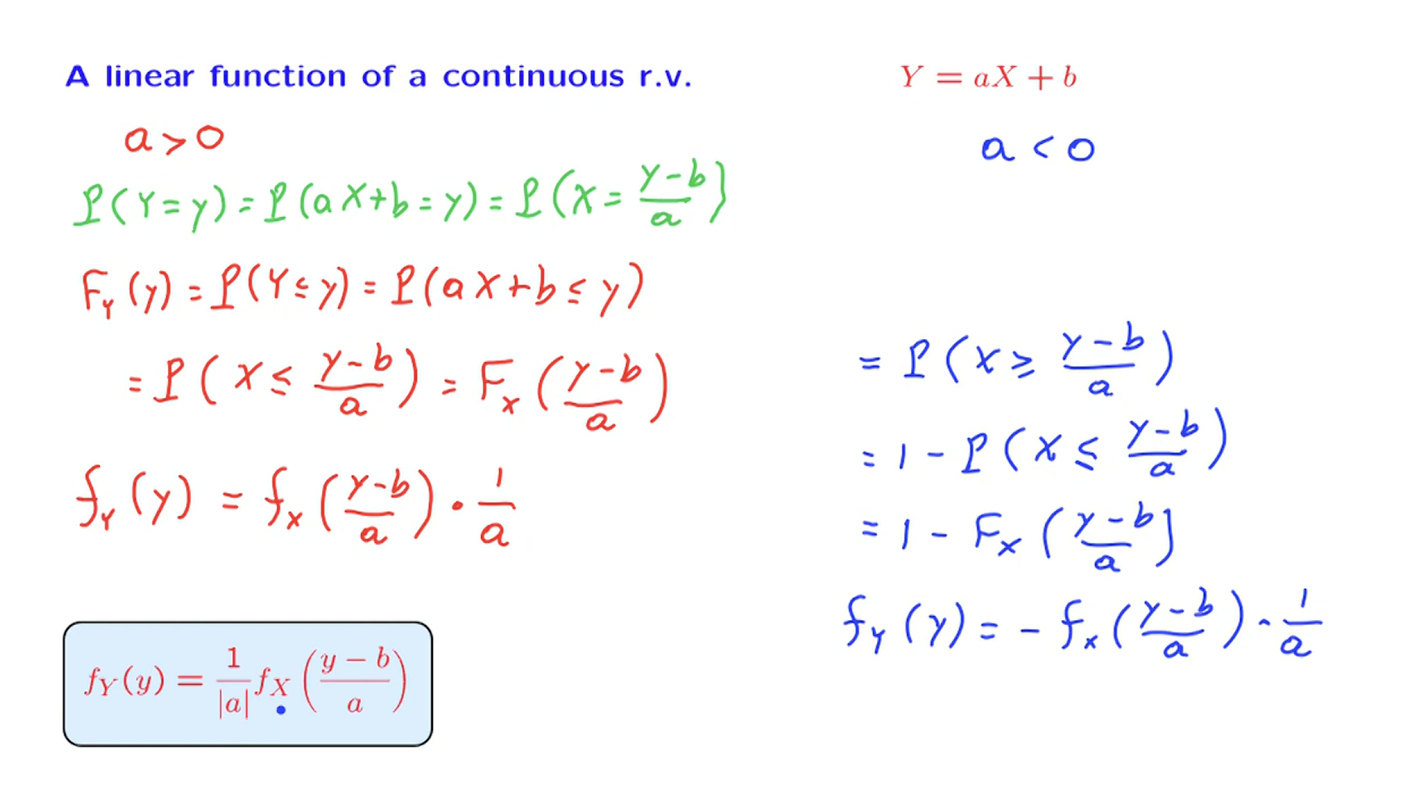 A linear function of a continuous r.v.
Y = aX + b
a > 0
P(Y = y) = P(aX + b = y) = P(X = \frac{y-b}{a})
F_Y(y) = P(Y ≤ y) = P(aX + b ≤ y)
= P(X ≤ \frac{y-b}{a}) = F_X(\frac{y-b}{a})
f_Y(y) = f_X(\frac{y-b}{a}) · \frac{1}{a}
f_Y(y) = \frac{1}{|a|} f_X(\frac{y-b}{a})
a < 0
= P(X ≥ \frac{y-b}{a})
= 1 - P(X ≤ \frac{y-b}{a})
= 1 - F_X(\frac{y-b}{a})
f_Y(y) = - f_X(\frac{y-b}{a}) · \frac{1}{a}